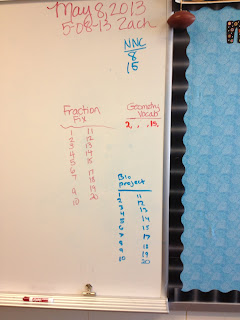 May 8, 2013
5-08-13 Zach
NNC
8
15
Fraction
Fix
1 11
2 12
3 13
4 14
5 15
6
7 17
8 18
9 19
10 20
Geometry
Vocab
2, , , 15,
Bio
project
1 11
2 12
3 13
4 14
5 15
6
7 17
8 18
9 19
10 20